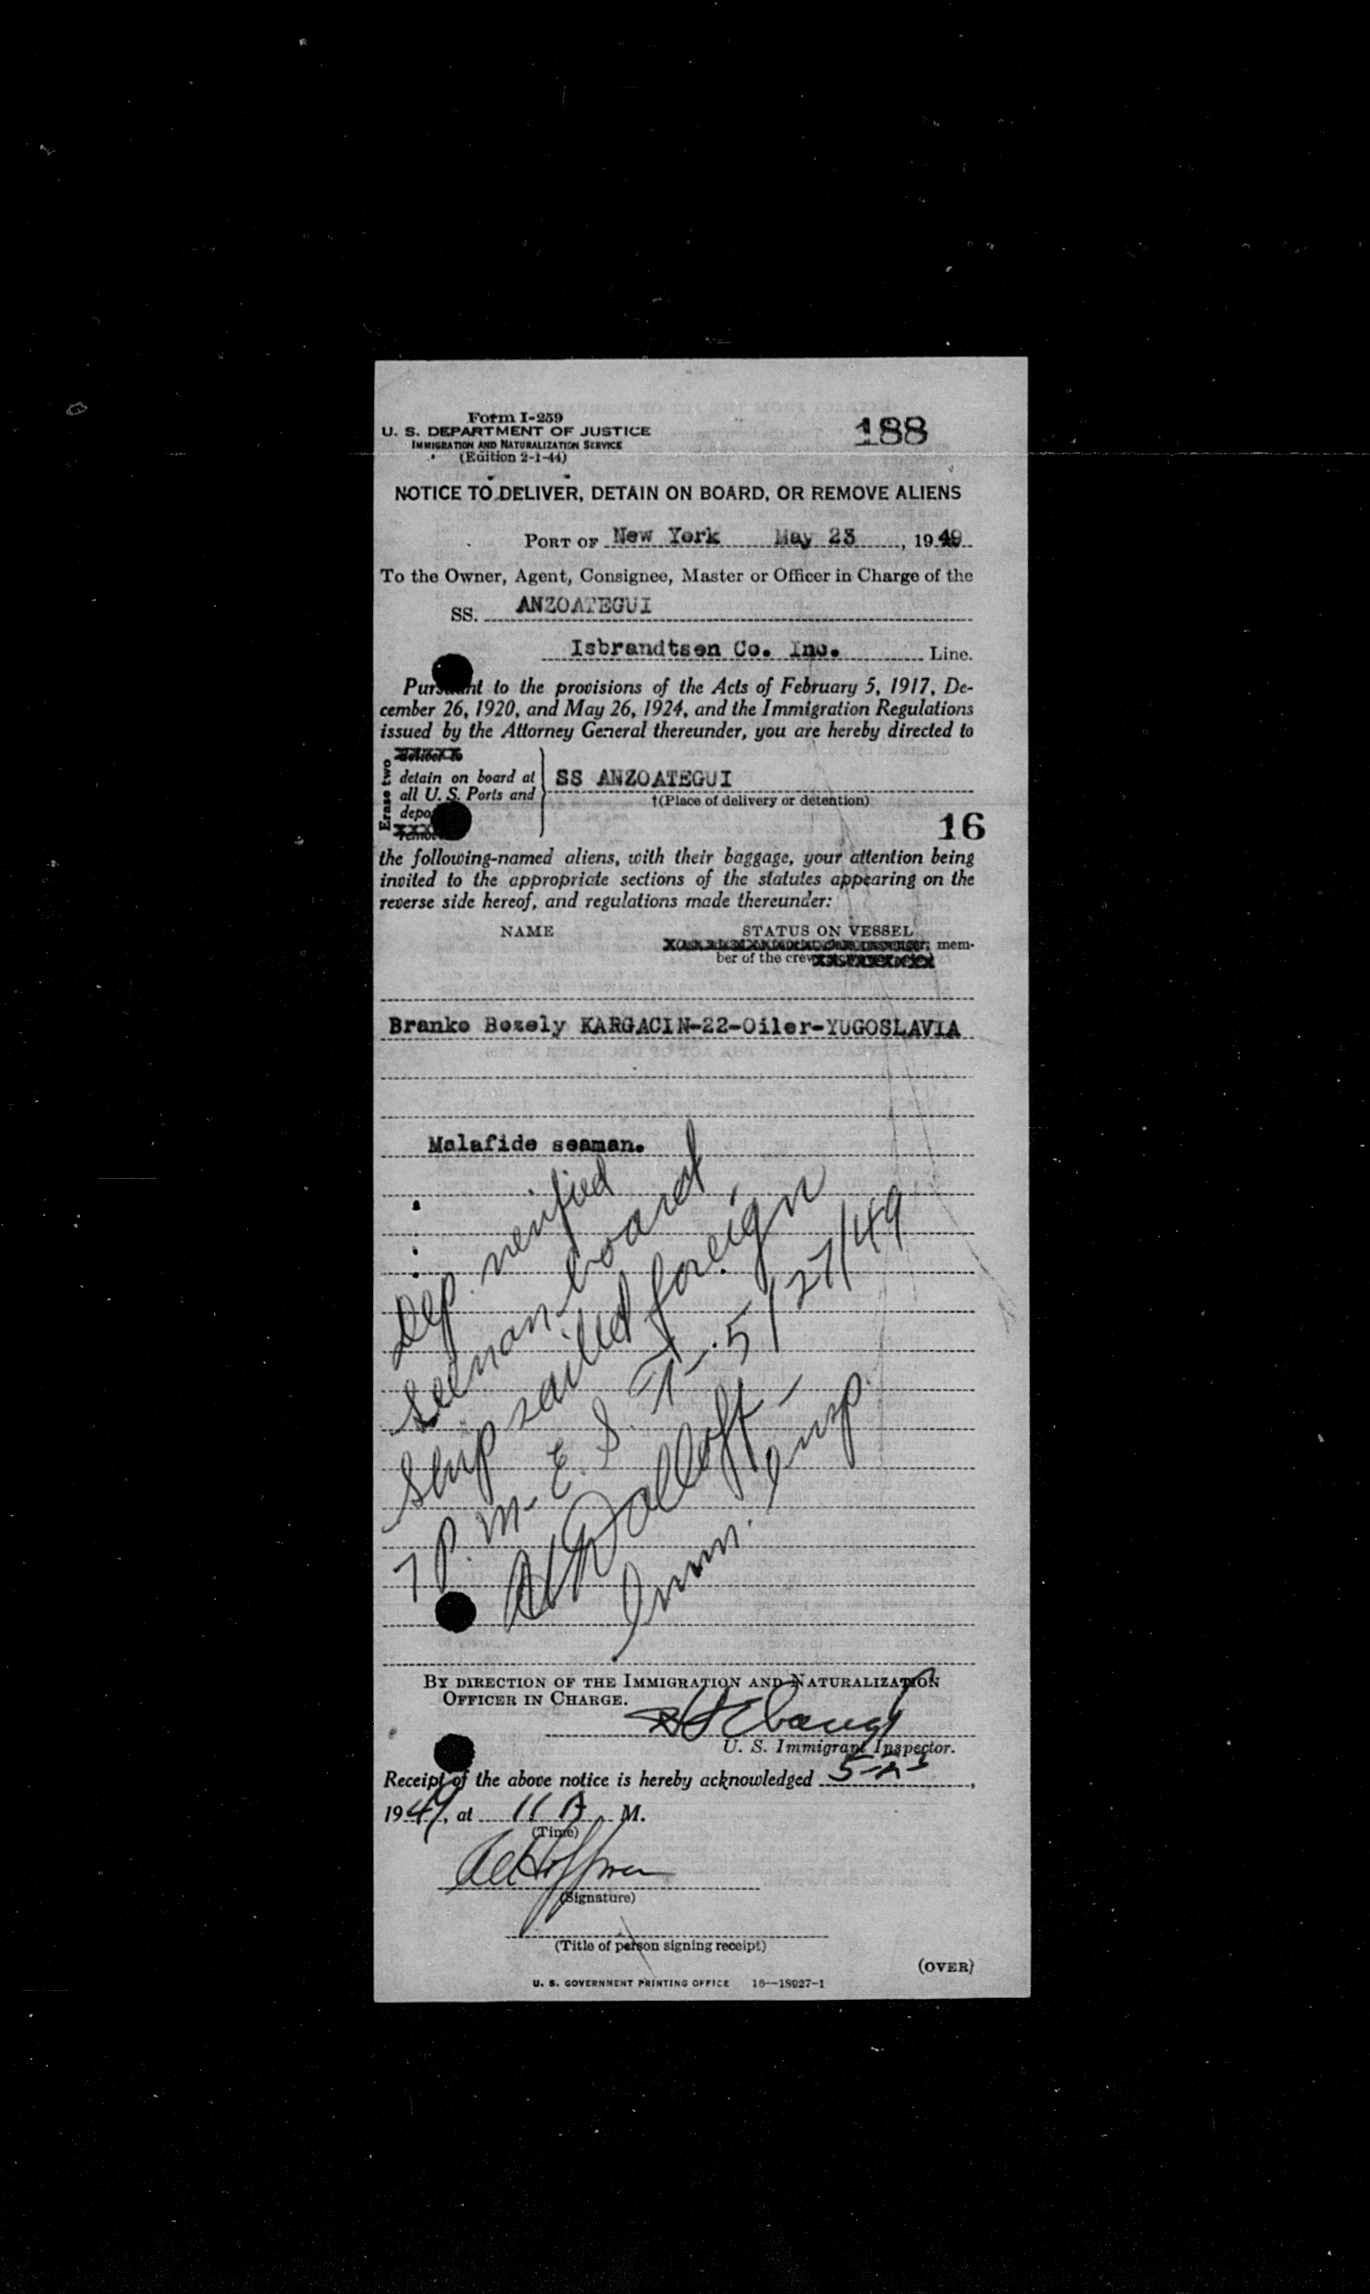 Form I-259
U. S. DEPARTMENT OF JUSTICE
IMMIGRATION AND NATURALIZATION SERVICE
(Edition 2-1-44)
188
NOTICE TO DELIVER, DETAIN ON BOARD, OR REMOVE ALIENS
PORT OF New York May 23, 1949
To the Owner, Agent, Consignee, Master or Officer in Charge of the
SS. ANZOATEGUI
Isbrandtsen Co. Inc. Line.
Pursuant to the provisions of the Acts of February 5, 1917, De-
cember 26, 1920, and May 26, 1924, and the Immigration Regulations
issued by the Attorney General thereunder, you are hereby directed to
Erase two
detain on board at
all U. S. Ports and
depo
SS ANZOATEGUI
†(Place of delivery or detention)
16
the following-named aliens, with their baggage, your attention being
invited to the appropriate sections of the statutes appearing on the
reverse side hereof, and regulations made thereunder:
NAME STATUS ON VESSEL
mem-
ber of the crew
Branko Bozely KARGACIN-22-Oiler-YUGOSLAVIA
Malafide seaman.
Dep. verified
Seeman board
Ship sailed foreign
7 P. M. E. S. T. 5/27/49
Imm. Insp.
BY DIRECTION OF THE IMMIGRATION AND NATURALIZATION
OFFICER IN CHARGE.
U. S. Immigrant Inspector.
Receipt of the above notice is hereby acknowledged 5-23,
1949, at 11 A M.
(Time)
(Signature)
(Title of person signing receipt)
(OVER)
U. S. GOVERNMENT PRINTING OFFICE 16—18927-1